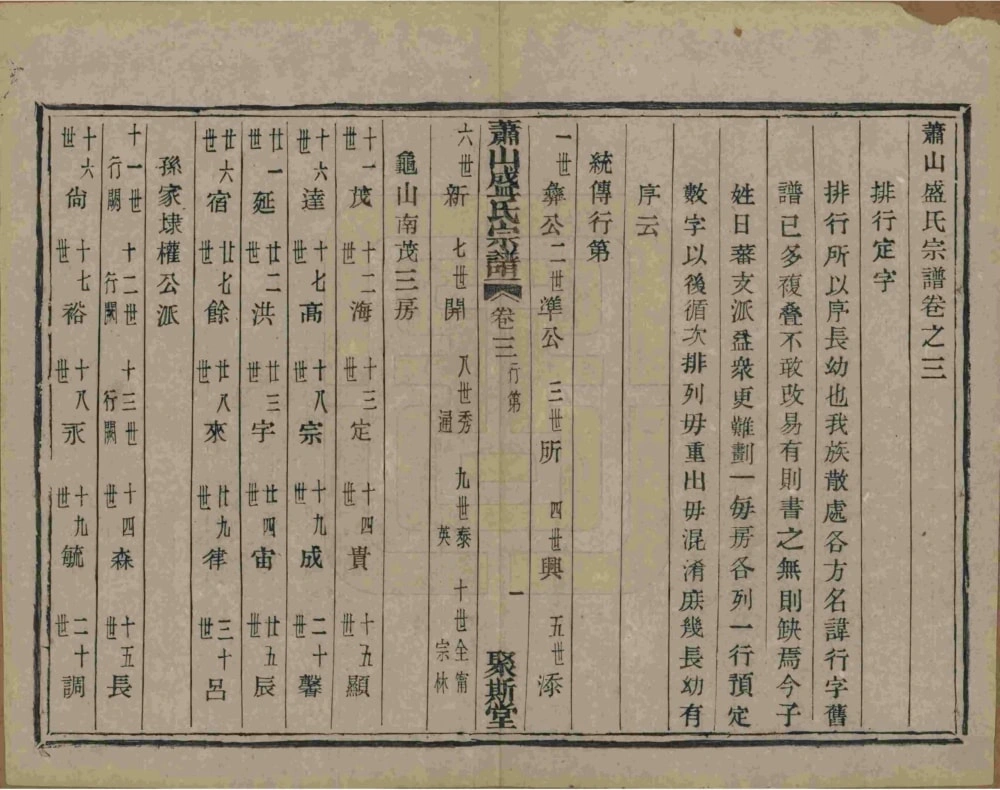 蕭山盛氏宗譜卷之三
排行定字
排行所以序長幼也我族散處各方名諱行字舊
譜已多複叠不敢改易有則書之無則缺焉今子
姓日蕃支派益衆更難劃一每房各列一行預定
數字以後循次排列毋重出毋混淆庶幾長幼有
序云
統傳行第
一世彝公 二世準公 三世所 四世興 五世添
蕭山盛氏宗譜 卷三 行第 一 聚斯堂
六世新 七世開 八世秀通 九世泰英 十世全甯宗林
龜山南茂三房
十一世茂 十二世海 十三世定 十四世貴 十五世顯
十六世達 十七世高 十八世宗 十九世成 二十世馨
廿一世延 廿二世洪 廿三世字 廿四世宙 廿五世辰
廿六世宿 廿七世餘 廿八世來 廿九世律 三十世呂
孫家埭權公派
十一世行闕 十二世行闕 十三世行闕 十四世森 十五世長
十六世尙 十七世裕 十八世永 十九世毓 二十世調